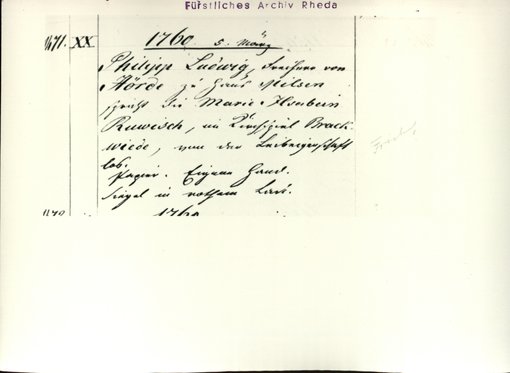 Fürstliches Archiv Rheda
1671. XX 1760 5. März
Philipp Ludwig, Freiherr von
Hörde zu Haus
spricht die Marie Ilsabein
Ruwisch, im Kirchspiel Brack-
wiede, von der Leibeigenschaft
los.
Papier. Eigene Hand.
Siegel in rothem Lack.
1760